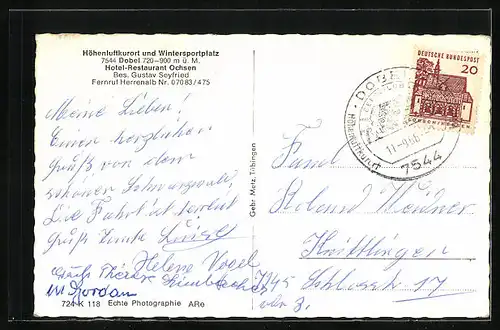 Höhenluftkurort und Wintersportplatz
7544 Dobel 720–900 m ü. M.
Hotel-Restaurant Ochsen
Bes. Gustav Seyfried
Fernruf Herrenalb Nr. 07083/475
DEUTSCHE BUNDESPOST
20
DOBEL
Höhenluftkurort
7544
Meine Lieben!
Einen herzlichen
Gruß von dem
schönen Schwarzwald,
Die Fahrt ist
Gruß Tante Luise
Helene Vogel
Gruß
M Jordan
Gebr. Metz, Tübingen
Roland Weidner
Knittlingen
7145 Schlosstr 17
724 K 118 Echte Photographie ARe